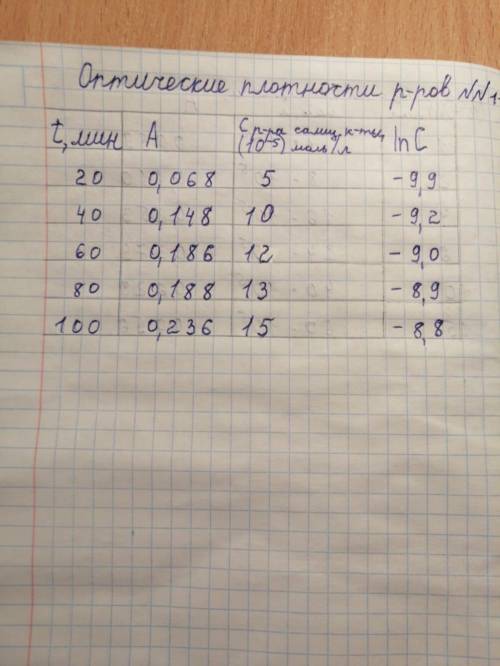 Оптические плотности р-ров NN1-
t, мин A C р-ра салиц. к-ты, (10⁻⁵) моль/л lnC
20 0,068 5 -9,9
40 0,148 10 -9,2
60 0,186 12 -9,0
80 0,188 13 -8,9
100 0,236 15 -8,8